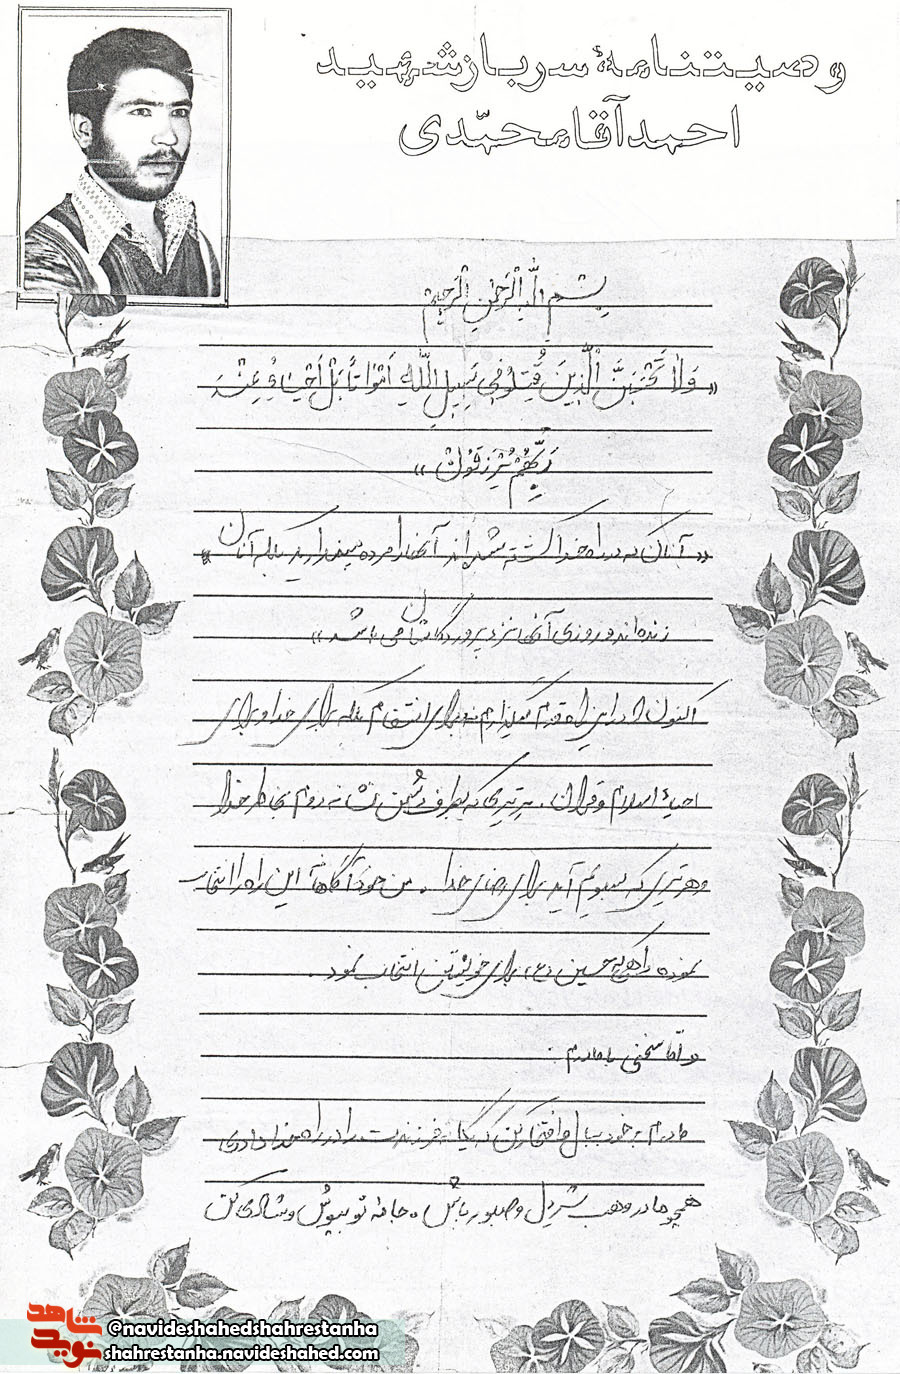 وصیتنامهٔ سرباز شهید
احمد آقامحمّدی
بِسْمِ اللّهِ الْرَحْمنِ الْرَحیمْ
«وَلا تَحْسَبَنَّ الَّذینَ قُتِلُو فی سَبیلِ اللّهِ اَمْواتاً بَلْ اَحْیاءٌ عِنْدَ
رَبِّهِمْ یُرْزَقُونْ»
«آنان که در راه خدا کشته شده اند آنها را مرده مپندارید بلکه آنان»
زنده اند و روزی آنها نزد پروردگارشان می باشد»
اکنون در این راه قدم میگذارم نه برای انتقام بلکه برای خدا و برای
احیاء اسلام و قرآن. هر تیری که بطرف دشمن نشانه روم بخاطر خدا
وهر تیری که بسویم آید برای رضای خدا. من خود آگاهانه این راه را انتخاب
نموده راهی که حسین (ع) برای خویشتن انتخاب نمود.
و امّا سخنی با مادرم:
مادرم بر خود ببال و افتخار کن که یگانه فرزندت را در راه خدا دادی
همچو مادر وهب شیردل و صبور باش. جامه نو بپوش و شادی کن
شاهد
نوید
@navideshahedshahrestanha
shahrestanha.navideshahed.com